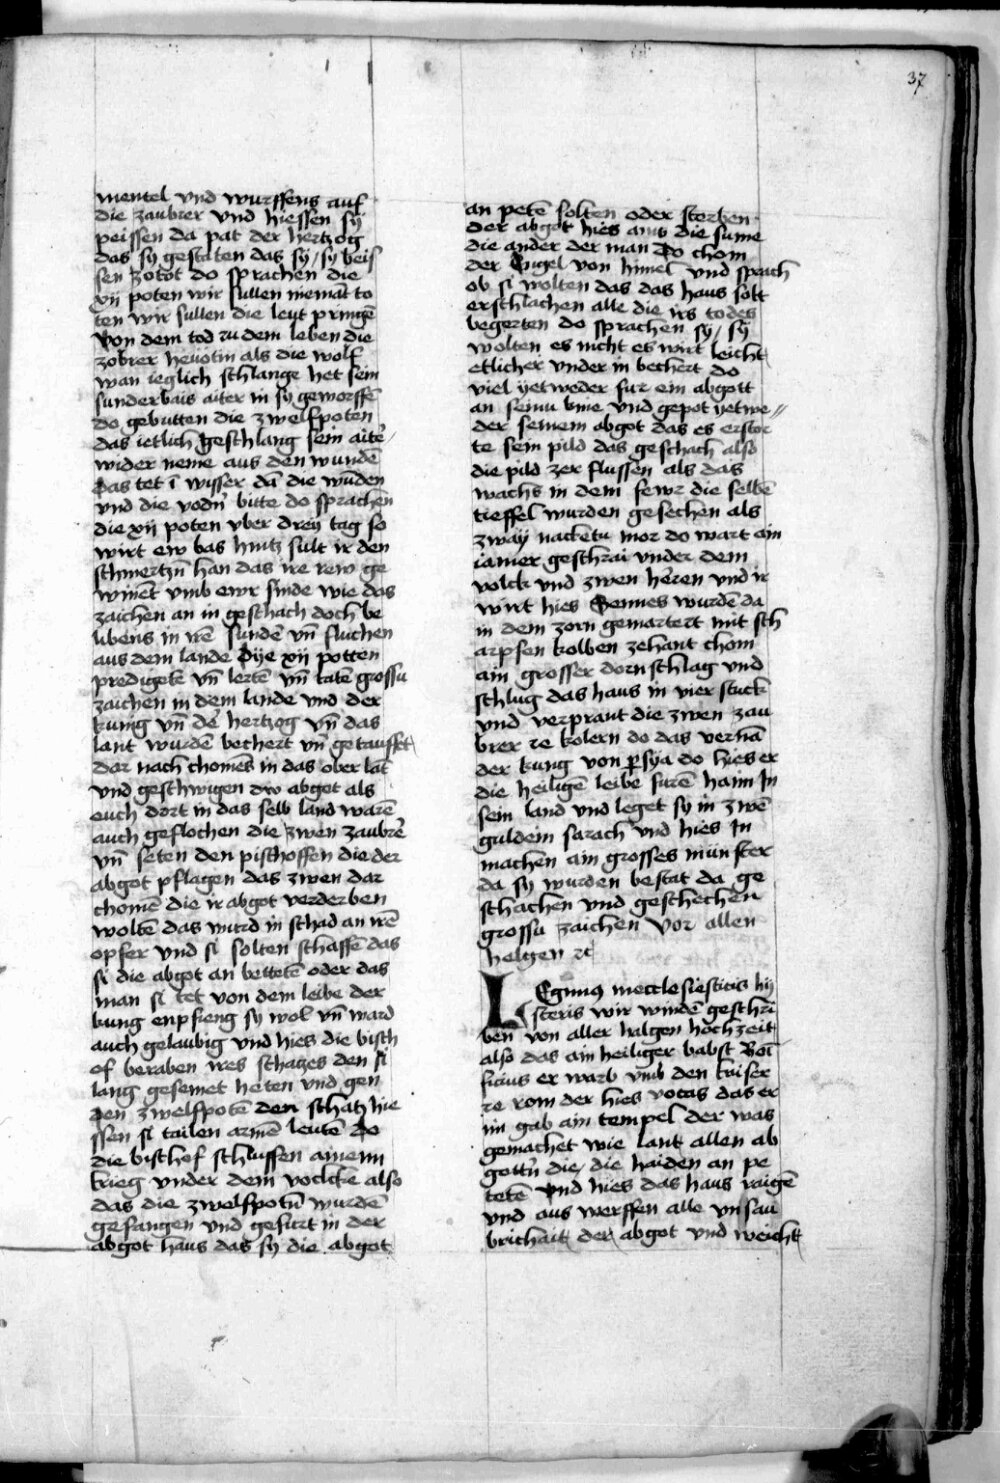 37
mentel vnd wurffens auf
die zaubrer vnd hiessen sÿ
peissen da pat der hertzog
das sÿ gestaten das sÿ / sÿ beis
sen zotot do sprachen die
xij poten wir sullen niemāt to
ten wir sullen die leut pringē
von dem tod zu dem leben die
zobrer heüotin als die wolf
wan ieglich schlange het sein
sunderbais aiter in sÿ geworffē
do gebutten die zwelfpoten
das ietlich geschlang sein aite᷑
wider neme aus den wundē
das tet ī wisser da die wūden
vnd die bitte do sprachen
die xij poten vber dreÿ tag so
wirt ew bas hintz sult ir den
schmertzn̄ han das ire rew ge
winēt vmb ewr sinde wie das
zaichen an in geschach doch be
libens in irē sundē vn̄ fluchen
aus dem lande Dÿe xij potten
predigetē vn̄ lertē vn̄ tatē grossu
zaichen in dem lande vnd der
kunig vn̄ de᷑ hertzog vn̄ das
lant wurdē bechert vn̄ getaufft
dar nach chomes in das ober lāt
vnd geschwigen dw abgot als
euch dort in das selb land warē
auch geflochen die zwen zaubre᷑
vn̄ seten den pischoffen die der
abgot pflagen das zwen dar
chomē die ir abgot verderben
woltē das wurd in schad an irē
opfer vnd si solten schaffē das
si die abgot an bettetē oder das
man si tet von dem leibe der
kung enpfieng sÿ wol vn̄ ward
auch gelaubig vnd hies die bisch
of beraben ires schatzes den si
lang gesemet heten vnd gen
den zwelfpotē den schatz hie
ssen si tailen armē leutē Do
die bischof schluffen ainem
krieg vnder dem volcke also
das die zwelfpotn̄ wurdē
gefangen vnd gefurt in der
abgot haus das sÿ die abgot
an petē solten oder sterben
der abgot hies ains die sunne
die ander der man Do chom
der Engel von himel vnd sprach
ob si wolten das das haus solt
erschlachen alle die irs todes
begerten do sprachen sÿ / sÿ
wolten es nicht es wirt leicht
etlicher vnder in bechert do
viel ÿetweder fur ein abgott
an seinu knie vnd gepot ÿetwe
der seinem abgot das es erstor
te sein pild das geschach also
die pild zer flussen als das
wachs in dem fewr die selbē
tieffel wurden gesechen als
zwaÿ nacketu mor do wart ain
iamer geschrai vnder dem
volck vnd zwen heren vnd ir
wirt hies Sennes wurdē da
in dem zorn gemartert mit sch
arpfen kolben zehant chom
ain grosser dornschlag vnd
schlug das haus in vier stuck
vnd verprant die zwen zau
brer ze kolern do das vernā
der kung von persÿa do hies er
die heiligē leibe furē haim In
sein land vnd leget sÿ in zwē
guldein sarach vnd hies In
machen ain grosses münster
da sÿ wurden bestat da ge
schachen vnd geschechen
grossu zaichen vor allen
helgen ꝛc
LEgimꝯ inecclesiesticis hÿ
steris wir windē geschri
ben von aller halgen hochzeit
also das ain heiliger babst Boī
ficius er warb vmb den kaiser
ze rom der hies vocas das er
im gab ain tempel der was
gemachet wie lant allen ab
gottn̄ die / die haiden an pe
tetē vnd hies das haus raigē
vnd aus werffen alle vnsau
brichait der abgot vnd weicht